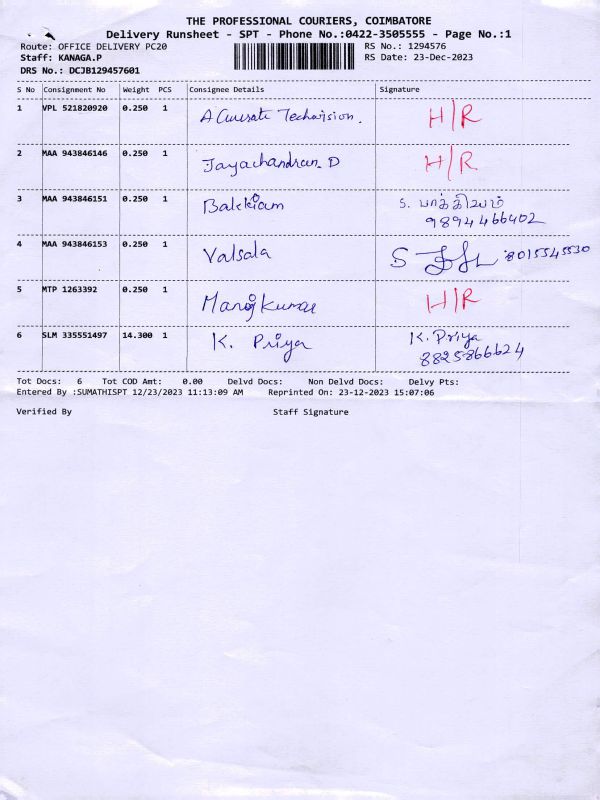 THE PROFESSIONAL COURIERS, COIMBATORE
Delivery Runsheet - SPT - Phone No.:0422-3505555 - Page No.:1
Route: OFFICE DELIVERY PC20 RS No.: 1294576
Staff: KANAGA.P RS Date: 23-Dec-2023
DRS No.: DCJB129457601
S No Consignment No Weight PCS Consignee Details Signature
1 VPL 521820920 0.250 1 A Curate Techvision. H/R
2 MAA 943846146 0.250 1 Jayachandran. D H/R
3 MAA 943846151 0.250 1 Bakkiam S. பாக்கியம்
9894466402
4 MAA 943846153 0.250 1 Valsala S 8015545530
5 MTP 1263392 0.250 1 Manojkumar H/R
6 SLM 335551497 14.300 1 K. Priya K. Priya
8825866624
Tot Docs: 6 Tot COD Amt: 0.00 Delvd Docs: Non Delvd Docs: Delvy Pts:
Entered By :SUMATHISPT 12/23/2023 11:13:09 AM Reprinted On: 23-12-2023 15:07:06
Verified By Staff Signature